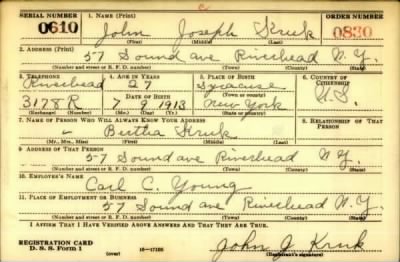 SERIAL NUMBER 1. NAME (Print) ORDER NUMBER
0610 John Joseph Kruk 0830
(First) (Middle) (Last)
2. ADDRESS (Print)
57 Sound ave Riverhead N.Y.
(Number and street or R. F. D. number) (Town) (County) (State)
3. TELEPHONE 4. AGE IN YEARS 5. PLACE OF BIRTH 6. COUNTRY OF CITIZENSHIP
Riverhead 27 Syracuse
DATE OF BIRTH (Town or county)
3178R 7 9 1913 New York U.S.
(Exchange) (Number) (Mo.) (Day) (Yr.) (State or country)
7. NAME OF PERSON WHO WILL ALWAYS KNOW YOUR ADDRESS 8. RELATIONSHIP OF THAT PERSON
Bertha Kruk
(Mr., Mrs., Miss) (First) (Middle) (Last)
9. ADDRESS OF THAT PERSON
57 Sound ave Riverhead N.Y.
(Number and street or R. F. D. number) (Town) (County) (State)
10. EMPLOYER'S NAME
Carl C. Young
11. PLACE OF EMPLOYMENT OR BUSINESS
57 Sound ave Riverhead N.Y.
(Number and street or R. F. D. number) (Town) (County) (State)
I AFFIRM THAT I HAVE VERIFIED ABOVE ANSWERS AND THAT THEY ARE TRUE.
REGISTRATION CARD
D. S. S. Form 1 (over) 16—17105 John J Kruk
(Registrant's signature)